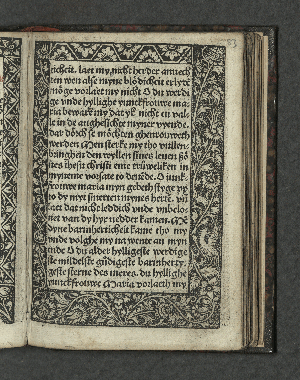 83
eicheit. laet my nicht herder anuech
ten wen alse myne blödicheit erlyde
möge vorlaet my nicht O du werdi
ge vnde hyllighe yunckfrouwe ma
ria beware my dat yk nicht en val
le in de angesichte myner vyende.
dat doch se möchten ghenrouweth
werden Men sterke my tho vullen
bringhen den wyllen sines leuen sö
nes ihesu christi ene truweliken in
myneme vorsate to denede. O iunk
frouwe maria myn gebeth styge yp
to dy myt sinerten mynes herte. vn
laet dat nicht leddich vnde vnbelo
net van dy hyr nedder kamen.
dyne barmherticheit kame tho my
vnde volghe my na wente an myn
ende O du alder hylligeste werdige
ste mildeste gudigeste barmherty
geste sterne des meres. du hyllighe
yunckfrouwe Maria vorlaeth my